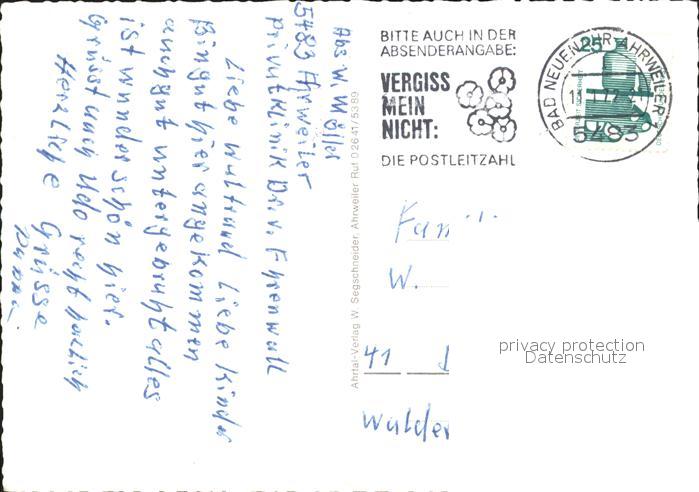 Abs W. Möller
5483 Ahrweiler
privatklinik Dr. v. Ehrenwall
Liebe Waltraud Liebe Kinder
Bin gut hier angekommen
auch gut untergebracht alles
ist wunderschön hier.
Grüsst auch Udo recht herzlich
Herzliche Grüsse
Ahrtal-Verlag W. Segschneider, Ahrweiler Ruf 02641/5389
BITTE AUCH IN DER
ABSENDERANGABE:
VERGISS
MEIN
NICHT:
DIE POSTLEITZAHL
25
BAD NEUENAHR-AHRWEILER
5483
Fam
W.
41
Walder
privacy protection
Datenschutz